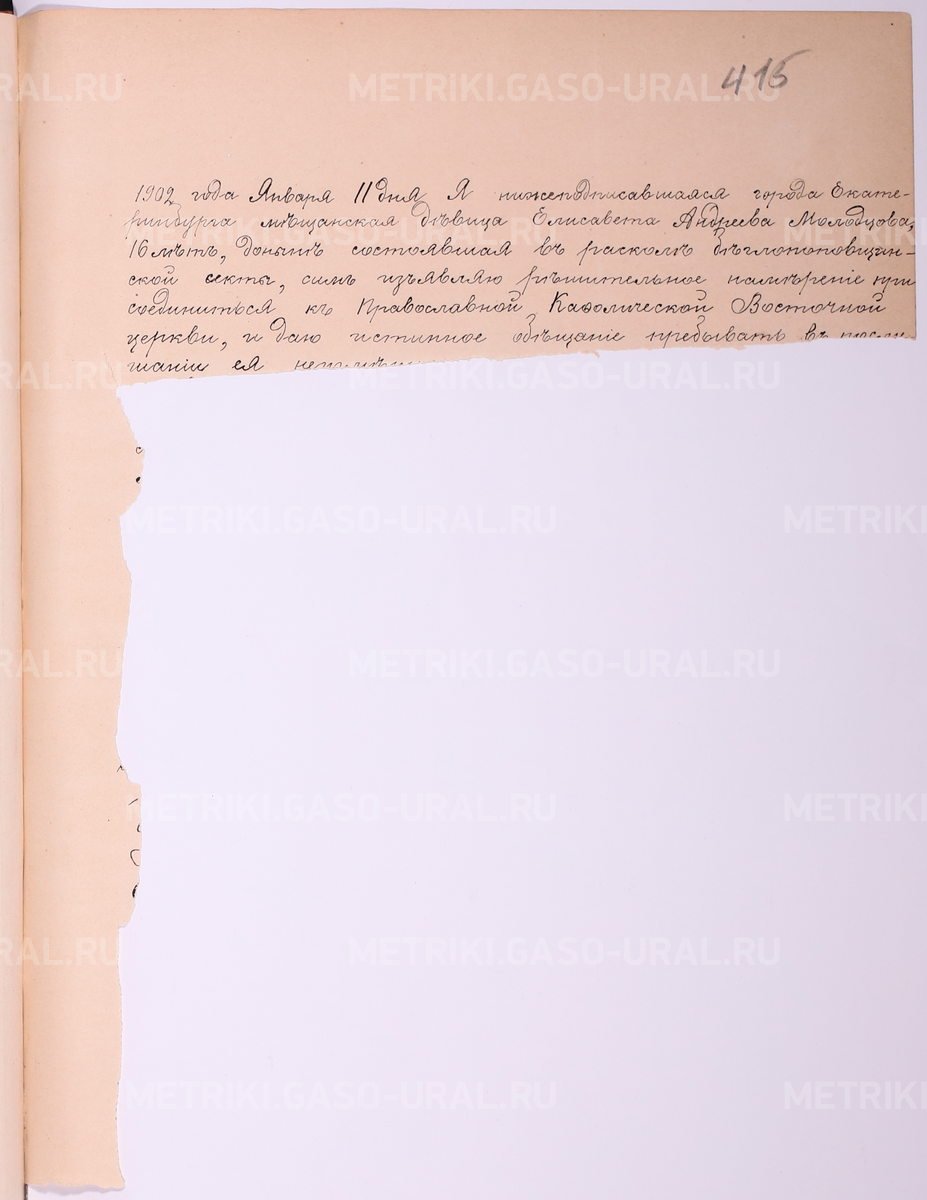 415
1902 года Января 11 дня Я нижеподписавшаяся города Екате-
ринбурга мѣщанская дѣвица Елисавета Андреева Молодцова,
16 лѣтъ, донынѣ состоявшая въ расколѣ бѣглопоповщин-
ской секты, симъ изъявляю рѣшительное намѣреніе при
соединиться къ Православной Каѳолической Восточной
церкви, и даю истинное обѣщаніе пребывать въ послу
шаніи ея
METRIKI.GASO-URAL.RU